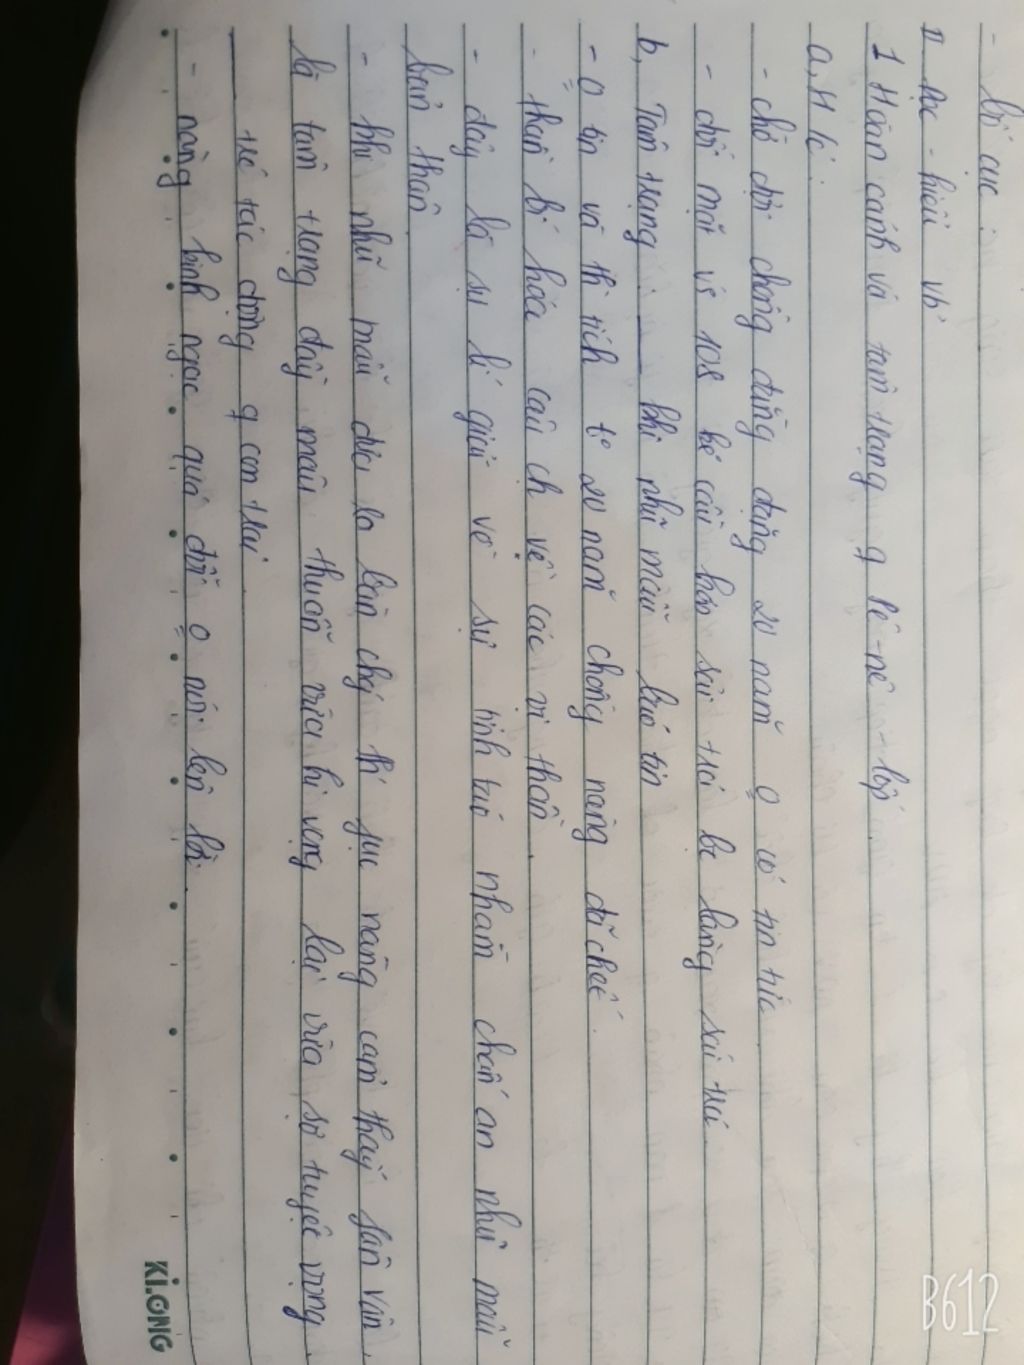 - bố cục :
II Đọc - hiểu vb
1 Hoàn cảnh và tâm trạng q Pê-nê-lốp.
a, H c :
- chờ đợi chồng đằng đẵng 20 năm o có tin tức
- đối mặt vs 108 kẻ cầu hôn
b, Tâm trạng khi nhũ mẫu báo tin
- o tin và th tích t 20 năm chồng nàng đã chết.
- thần bí hóa câu ch về các vị thần.
- đây là sự lí giải về sự nhằm chấn an nhũ mẫu
bản thân
- khi nhũ mẫu đưa ra bằng chứng thì nàng cảm thấy phân vân.
là tâm trạng đầy mâu thuẫn vừa hi vọng lại vừa sợ tuyệt vọng.
tác động q con trai
- nàng kinh ngạc quá đỗi o nói lên lời.
KI.ONG
B612